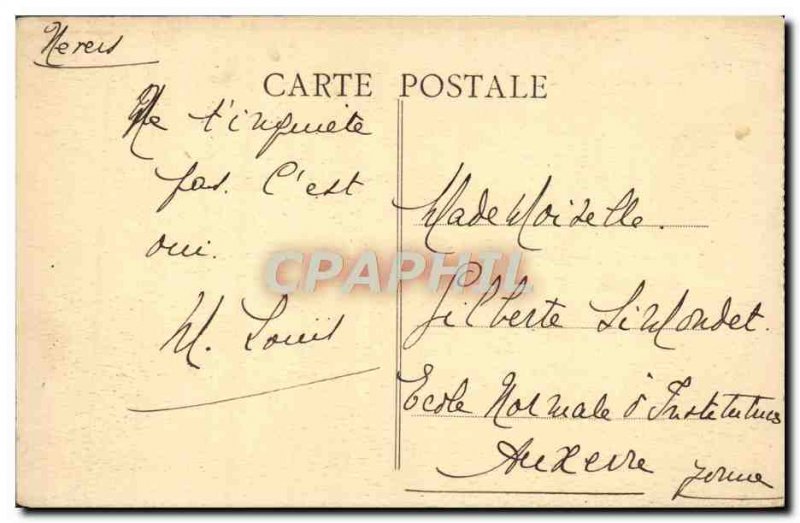 Nevers
CARTE POSTALE
Ne t'inquiète
pas. C'est
oui.
M. Louis
Mademoiselle.
Gilberte Simondet.
Ecole Normale d'Institutrices
Auxerre Yonne
CPAPHIL